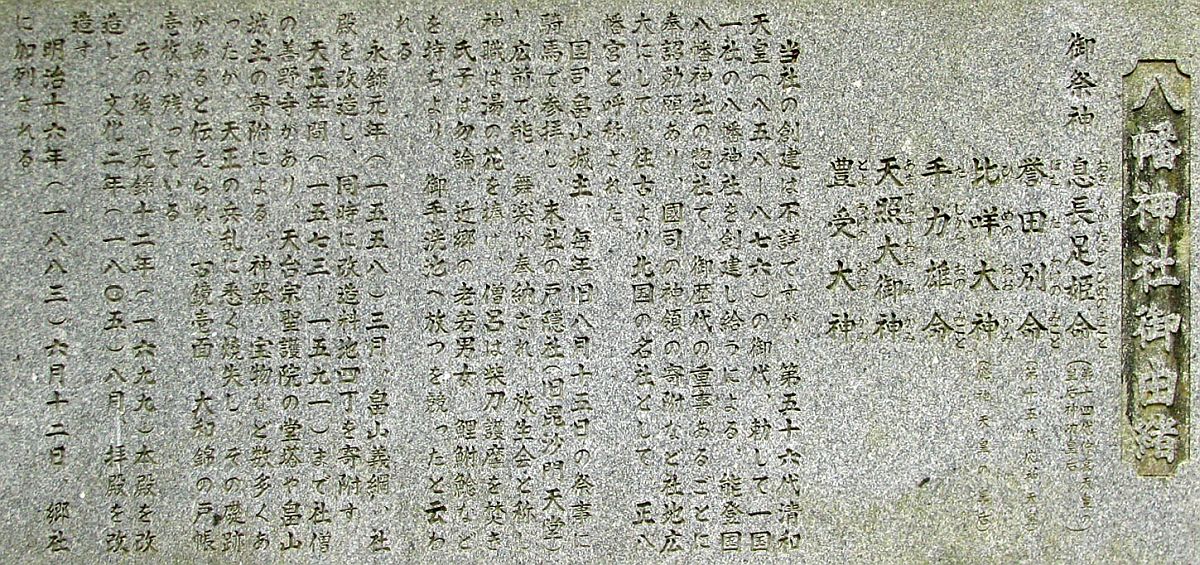 八幡神社御由緒
御祭神 息長足姫命
誉田別命
比咩大神
手力雄命
天照大御神
豊受大神
当社の創建は不詳ですが、第五十六代清和
天皇(八五八ー八七六)の御代、勅して一国
一社の八幡神社を創建し給うによる。能登国
八幡神社の惣社て、御歴代の重事あるごとに
奏認効願あり、國司の神領の寄附など社地広
大にして、往古より北国の名社として、正八
幡宮と呼称された
国司畠山城主、毎年旧八月十五日の祭事に
騎馬で参拝し、末社の戸隠社(旧毘沙門天堂)
広前で能、舞楽が奉納され、放生会と称し
神職は湯の花を捧げ、僧呂は柴刀護摩を焚き
氏子は勿論、近郷の老若男女、鯉鮒鯰など
を持ちより、御手洗池へ放つを競ったと云わ
れる
永録元年(一五五八)三月、畠山義綱、社
殿を改造し、同時に改造料地四丁を寄附す
天正年間(一五七三ー一五九一)まで社僧
の善野寺があり、天台宗聖護院の堂塔や畠山
城主の寄附による、神器、宝物など数多くあ
ったが、天正の兵乱に悉く焼失し、その慶跡
があると伝えられ、古鏡壱面、大和錦の戸帳
壱旒が残っている
その後、元録十二年(一六九九)本殿を改
造し、文化二年(一八〇五)八月、拝殿を改
造す
明治十六年(一八八三)六月十二日、郷社
に加列される